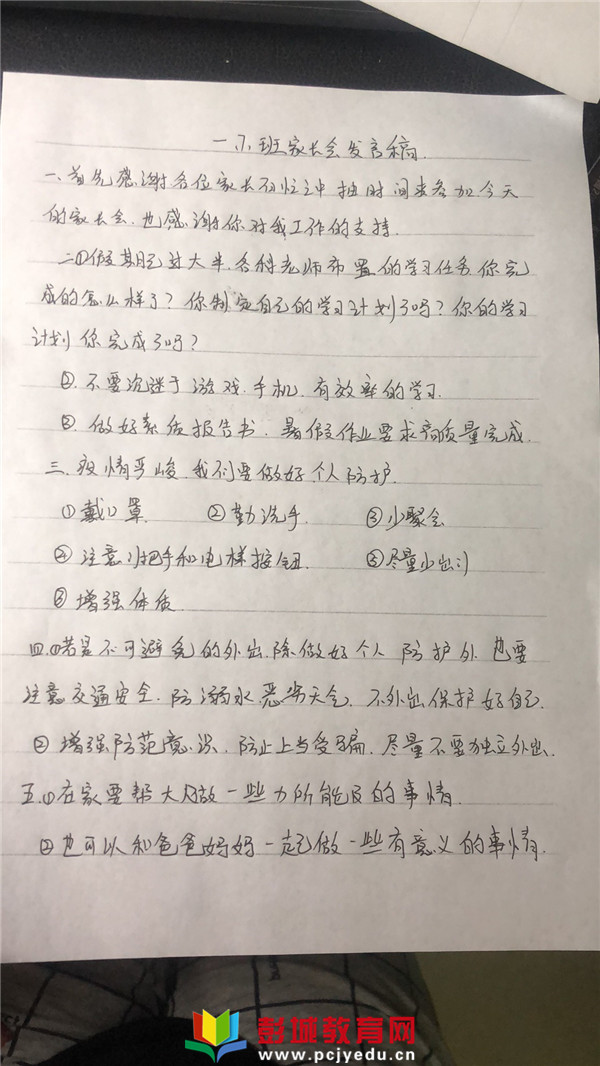 一、7、班家长会发言稿.
一、首先感谢各位家长百忙之中抽时间来参加今天
的家长会.也感谢你对我工作的支持.
二①假期已过大半.各科老师布置的学习任务你完
成的怎么样了？你制定自己的学习计划了吗？你的学习
计划你完成了吗？
②.不要沉迷于游戏.手机.有效率的学习.
③.做好素质报告书.暑假作业要求高质量完成.
三.疫情严峻.我们要做好个人防护.
①戴口罩. ②勤洗手. ③少聚会
④注意门把手和电梯按钮. ⑤尽量少出门
⑥增强体质.
四.①若是不可避免的外出.除做好个人防护外.也要
注意交通安全.防溺水.恶劣天气.不外出保护好自己.
②增强防范意识.防止上当受骗.尽量不要独立外出.
五.①在家要帮大人做一些力所能及的事情.
②也可以和爸爸妈妈一起做一些有意义的事情.
彭城教育网
www.pcjyedu.cn